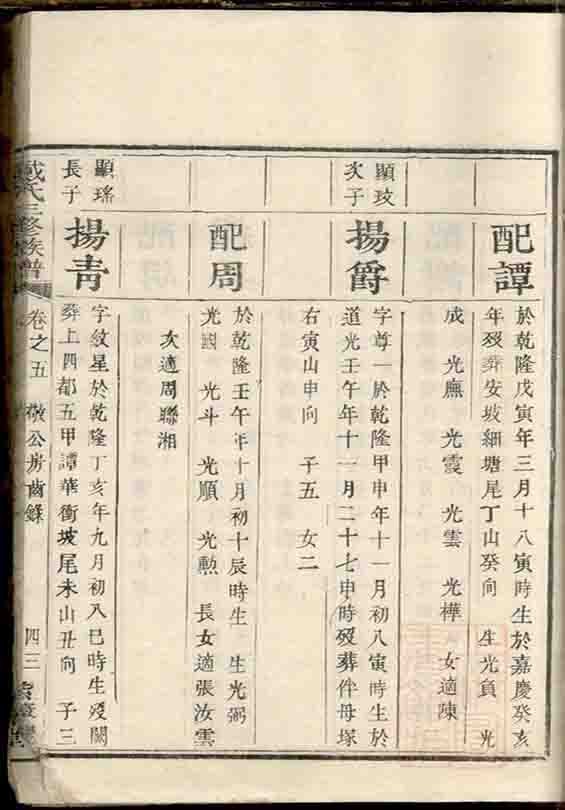 配譚
於乾隆戊寅年三月十八寅時生於嘉慶癸亥
年歿葬安坡細塘尾丁山癸向 生光負 光
成 光廡 光霞 光雲 光樺 女適陳
顯玟
次子
揚爵
字尊一於乾隆甲申年十一月初八寅時生於
道光壬午年十一月二十七申時歿葬伴母塚
右寅山申向 子五 女二
配周
於乾隆壬午年十月初十辰時生 生光弼
光國 光斗 光順 光勲 長女適張汝雲
次適周聯湘
顯瑤
長子
揚青
字紋星於乾隆丁亥年九月初八巳時生歿闕
葬上四都五甲譚華衝坡尾未山丑向 子三
戴氏三修族譜 卷之五 敬公房齒錄 四三